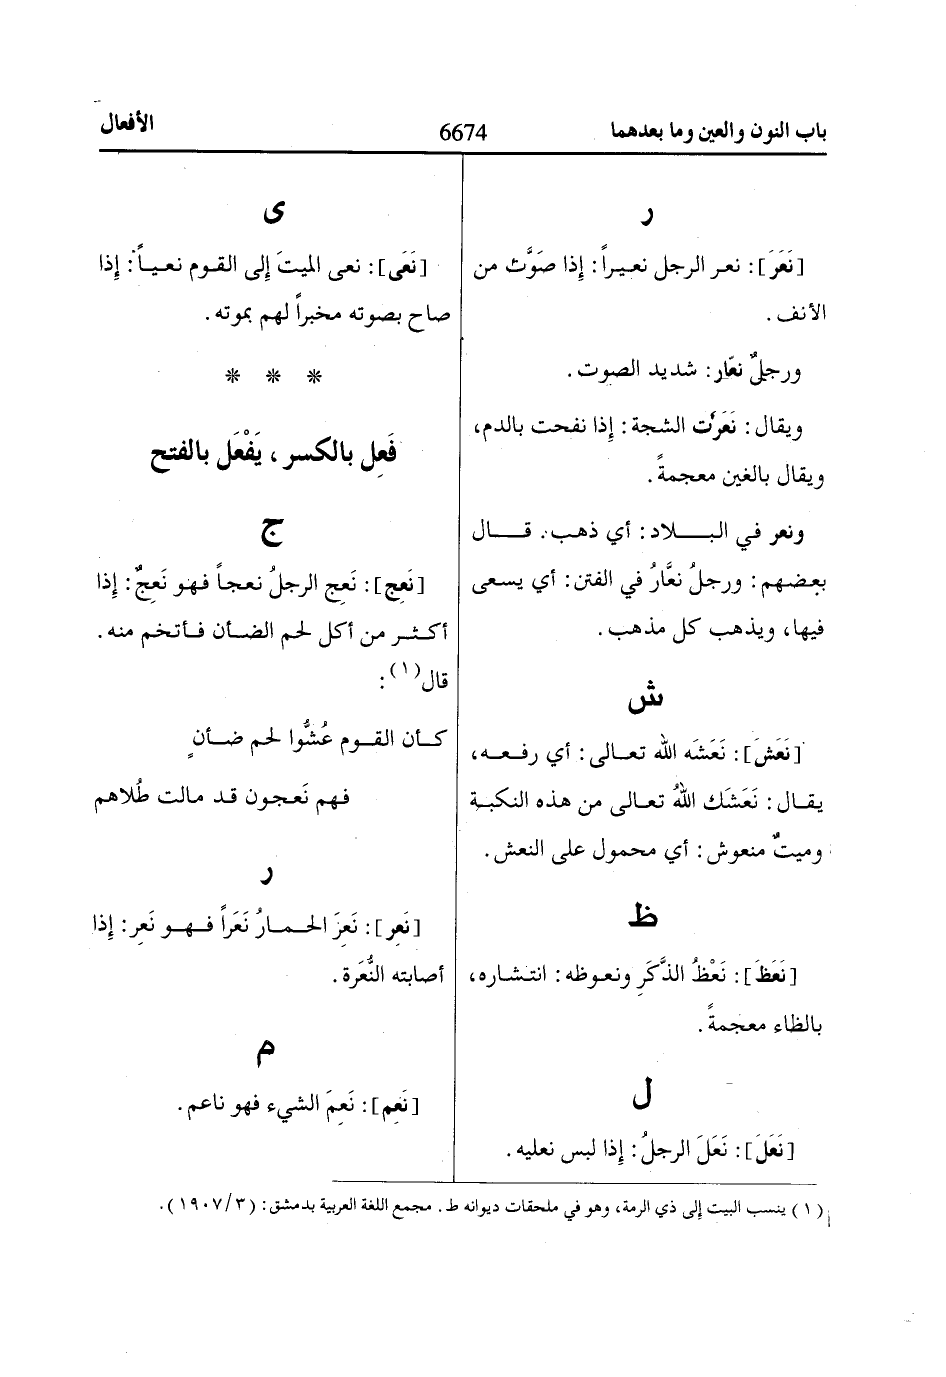 باب النون والعين وما بعدهما
6674
الأفعال
ر
[نَعَرَ]: نعر الرجل نعيراً: إذا صَوَّت من
الأنف.
ورجلٌ نعّار: شديد الصوت.
ويقال: نَعَرَت الشجة: إذا نفحت بالدم،
ويقال بالغين معجمةً.
ونعر في البلاد: أي ذهب. قال
بعضهم: ورجلُ نعَّارُ في الفتن: أي يسعى
فيها، ويذهب كل مذهب.
ش
[نَعَشَ]: نَعَشَه الله تعالى: أي رفعه،
يقال: نَعَشَك اللهُ تعالى من هذه النكبة
وميتٌ منعوش: أي محمول على النعش.
ظ
[نَعَظَ]: نَعْظُ الذَّكَرِ ونعوظه: انتشاره،
بالظاء معجمةً.
ل
[نَعَلَ]: نَعَلَ الرجلُ: إذا لبس نعليه.
ى
[نَعَى]: نعى الميتَ إلى القوم نعياً: إذا
صاح بصوته مخبراً لهم بموته.
* * *
فَعِل بالكسر، يَفْعَل بالفتح
ج
[نَعِج]: نَعِج الرجلُ نعجاً فهو نَعِجٌ: إذا
أكثر من أكل لحم الضأن فأتخم منه.
قال(١):
كأن القوم عُشُّوا لحم ضأنٍ
فهم نَعجون قد مالت طُلاهم
ر
[نَعِر]: نَعِرَ الحمارُ نَعَراً فهو نَعِر: إذا
أصابته النُّعَرة.
م
[نَعِم]: نَعِمَ الشيء فهو ناعم.
(١) ينسب البيت إلى ذي الرمة، وهو في ملحقات ديوانه ط. مجمع اللغة العربية بدمشق: (١٩٠٧/٣).